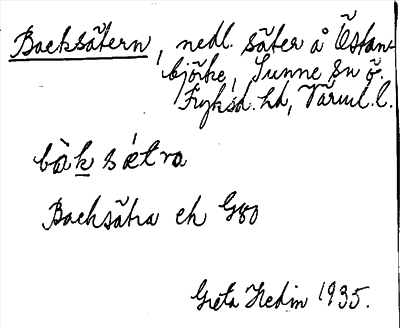 Backsätern, nedl. säter å Östan-
björke, Sunne sn ö.
Fryksd. hd, Värml. l.
bàk sǽtra
Backsätra ek G80
Greta Hedin 1935.